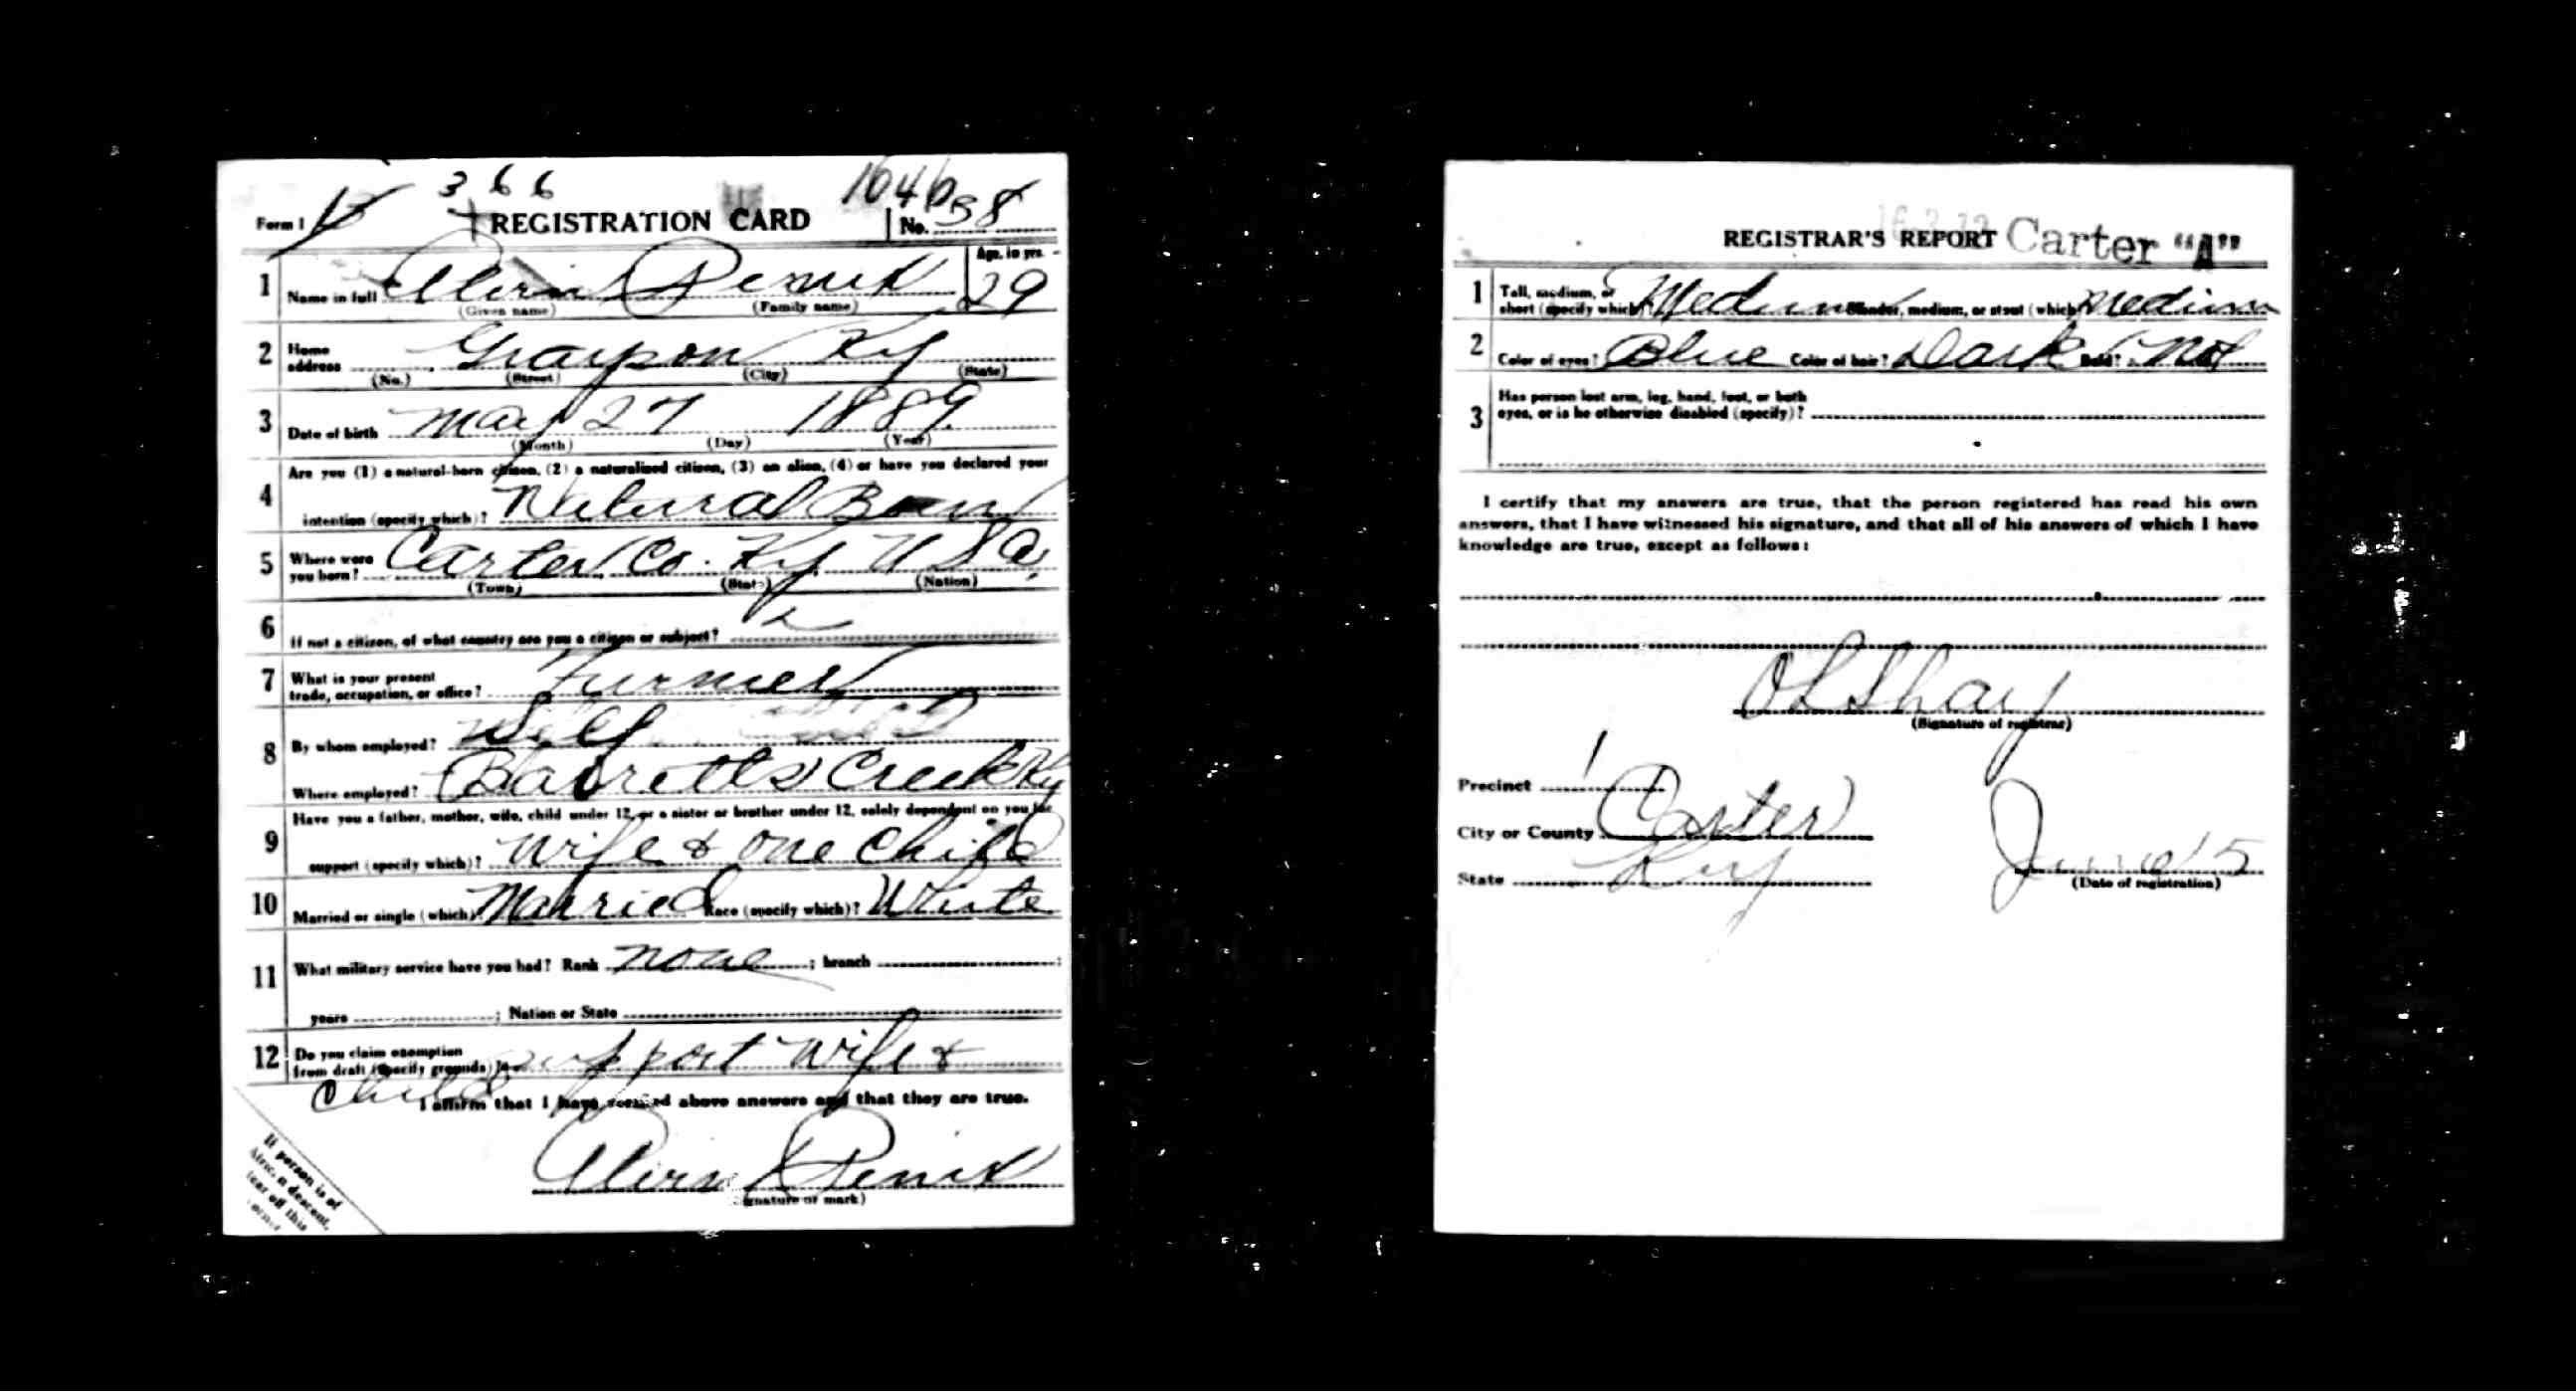 366
1646
Form 1 REGISTRATION CARD No. 38
1 Name in full Penix Age, in yrs. 29
(Given name) (Family name)
2 Home address Grayson Ky
(No.) (Street) (City) (State)
3 Date of birth May 27 1889
(Month) (Day) (Year)
4 Are you (1) a natural-born citizen, (2) a naturalized citizen, (3) an alien, (4) or have you declared your
intention (specify which)? Natural Born
5 Where were you born? Carter Co. Ky U S a.
(Town) (State) (Nation)
6 If not a citizen, of what country are you a citizen or subject?
7 What is your present
trade, occupation, or office? Farmer
8 By whom employed? Self
Where employed? Barretts Creek Ky
9 Have you a father, mother, wife, child under 12, or a sister or brother under 12, solely dependent on you for
support (specify which)? Wife & one Child
10 Married or single (which)? Married Race (specify which)? White
11 What military service have you had? Rank none ; branch ;
years ; Nation or State
12 Do you claim exemption
from draft (specify grounds)? Support Wife &
Child
I affirm that I have verified above answers and that they are true.
Penix
(Signature or mark)
If person is of
African descent,
tear off this
corner
REGISTRAR'S REPORT Carter "A"
1 Tall, medium, or
short (specify which)? Medium Slender, medium, or stout (which)? medium
2 Color of eyes? Blue Color of hair? Dark Bald? Not
3 Has person lost arm, leg, hand, foot, or both
eyes, or is he otherwise disabled (specify)?
I certify that my answers are true, that the person registered has read his own
answers, that I have witnessed his signature, and that all of his answers of which I have
knowledge are true, except as follows:
O L Shay
(Signature of registrar)
Precinct 1
City or County Carter
State Ky June 5
(Date of registration)